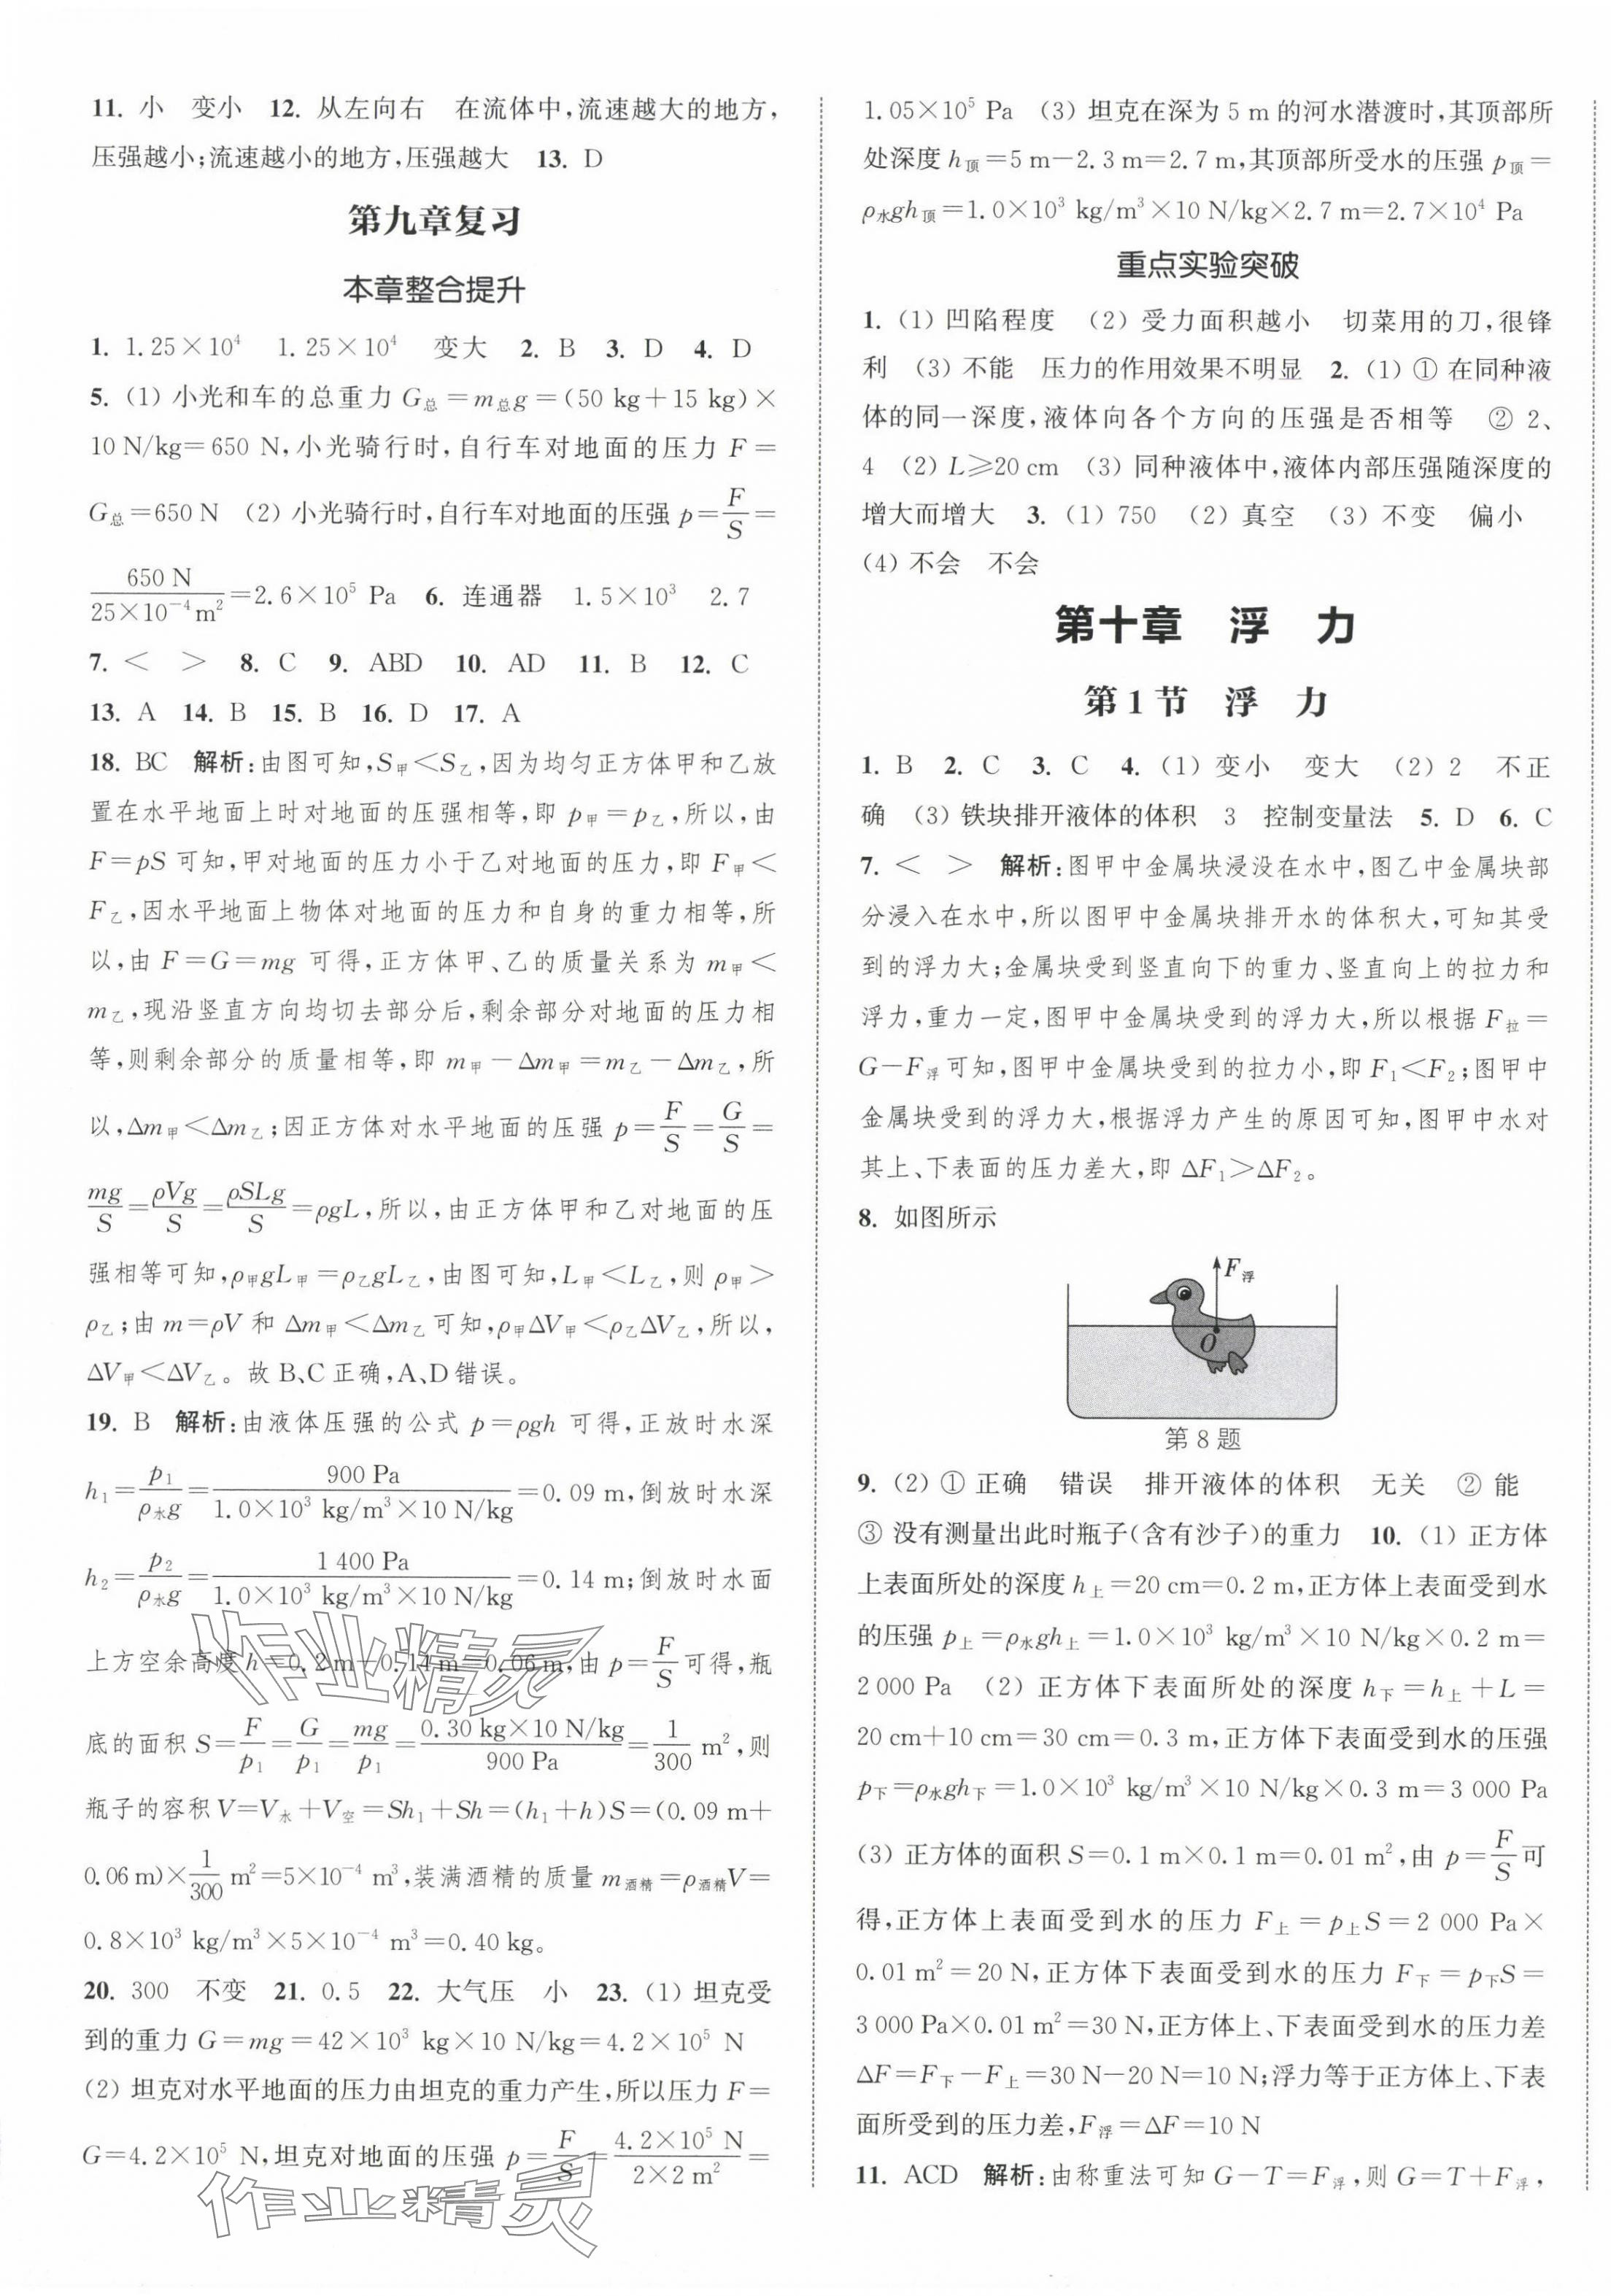 11. 小　变小　12. 从左向右　在流体中,流速越大的地方,
压强越小;流速越小的地方,压强越大　13. D
第九章复习
本章整合提升
1. 1.25×10⁴　1.25×10⁴　变大　2. B　3. D　4. D
5. (1) 小光和车的总重力 G总=m总g=(50 kg+15 kg)×
10 N/kg=650 N,小光骑行时,自行车对地面的压力 F=
G总=650 N　(2) 小光骑行时,自行车对地面的压强 p=F/S=
650 N/(25×10⁻⁴ m²)=2.6×10⁵ Pa　6. 连通器　1.5×10³　2.7
7. <　>　8. C　9. ABD　10. AD　11. B　12. C
13. A　14. B　15. B　16. D　17. A
18. BC　解析:由图可知,S甲<S乙,因为均匀正方体甲和乙放
置在水平地面上时对地面的压强相等,即 p甲=p乙,所以,由
F=pS 可知,甲对地面的压力小于乙对地面的压力,即 F甲<
F乙,因水平地面上物体对地面的压力和自身的重力相等,所
以,由 F=G=mg 可得,正方体甲、乙的质量关系为 m甲<
m乙,现沿竖直方向均切去部分后,剩余部分对地面的压力相
等,则剩余部分的质量相等,即 m甲-Δm甲=m乙-Δm乙,所
以,Δm甲<Δm乙;因正方体对水平地面的压强 p=F/S=G/S=
mg/S=ρVg/S=ρSLg/S=ρgL,所以,由正方体甲和乙对地面的压
强相等可知,ρ甲gL甲=ρ乙gL乙,由图可知,L甲<L乙,则 ρ甲>
ρ乙;由 m=ρV 和 Δm甲<Δm乙可知,ρ甲ΔV甲<ρ乙ΔV乙,所以,
ΔV甲<ΔV乙。故 B、C 正确,A、D 错误。
19. B　解析:由液体压强的公式 p=ρgh 可得,正放时水深
h₁=p₁/(ρ水g)=900 Pa/(1.0×10³ kg/m³×10 N/kg)=0.09 m,倒放时水深
h₂=p₂/(ρ水g)=1 400 Pa/(1.0×10³ kg/m³×10 N/kg)=0.14 m;倒放时水面
上方空余高度 h=0.2 m-0.14 m=0.06 m,由 p=F/S 可得,瓶
底的面积 S=F/p₁=G/p₁=mg/p₁=(0.30 kg×10 N/kg)/900 Pa=1/300 m²,则
瓶子的容积 V=V水+V空=Sh₁+Sh=(h₁+h)S=(0.09 m+
0.06 m)×1/300 m²=5×10⁻⁴ m³,装满酒精的质量 m酒精=ρ酒精V=
0.8×10³ kg/m³×5×10⁻⁴ m³=0.40 kg。
20. 300　不变　21. 0.5　22. 大气压　小　23. (1) 坦克受
到的重力 G=mg=42×10³ kg×10 N/kg=4.2×10⁵ N
(2) 坦克对水平地面的压力由坦克的重力产生,所以压力 F=
G=4.2×10⁵ N,坦克对地面的压强 p=F/S=4.2×10⁵ N/(2×2 m²)=
作业精灵
作业精灵
1.05×10⁵ Pa　(3) 坦克在深为 5 m 的河水潜渡时,其顶部所
处深度 h顶=5 m-2.3 m=2.7 m,其顶部所受水的压强 p顶=
ρ水gh顶=1.0×10³ kg/m³×10 N/kg×2.7 m=2.7×10⁴ Pa
重点实验突破
1. (1) 凹陷程度　(2) 受力面积越小　切菜用的刀,很锋
利　(3) 不能　压力的作用效果不明显　2. (1) ① 在同种液
体的同一深度,液体向各个方向的压强是否相等　② 2、
4　(2) L≥20 cm　(3) 同种液体中,液体内部压强随深度的
增大而增大　3. (1) 750　(2) 真空　(3) 不变　偏小
(4) 不会　不会
第十章　浮　力
第 1 节　浮　力
1. B　2. C　3. C　4. (1) 变小　变大　(2) 2　不正
确　(3) 铁块排开液体的体积　3　控制变量法　5. D　6. C
7. <　>　解析:图甲中金属块浸没在水中,图乙中金属块部
分浸入在水中,所以图甲中金属块排开水的体积大,可知其受
到的浮力大;金属块受到竖直向下的重力、竖直向上的拉力和
浮力,重力一定,图甲中金属块受到的浮力大,所以根据 F拉=
G-F浮可知,图甲中金属块受到的拉力小,即 F₁<F₂;图甲中
金属块受到的浮力大,根据浮力产生的原因可知,图甲中水对
其上、下表面的压力差大,即 ΔF₁>ΔF₂。
8. 如图所示
F浮
O
第 8 题
9. (2) ① 正确　错误　排开液体的体积　无关　② 能
③ 没有测量出此时瓶子(含有沙子)的重力　10. (1) 正方体
上表面所处的深度 h上=20 cm=0.2 m,正方体上表面受到水
的压强 p上=ρ水gh上=1.0×10³ kg/m³×10 N/kg×0.2 m=
2 000 Pa　(2) 正方体下表面所处的深度 h下=h上+L=
20 cm+10 cm=30 cm=0.3 m,正方体下表面受到水的压强
p下=ρ水gh下=1.0×10³ kg/m³×10 N/kg×0.3 m=3 000 Pa
(3) 正方体的面积 S=0.1 m×0.1 m=0.01 m²,由 p=F/S 可
得,正方体上表面受到水的压力 F上=p上S=2 000 Pa×
0.01 m²=20 N,正方体下表面受到水的压力 F下=p下S=
3 000 Pa×0.01 m²=30 N,正方体上、下表面受到水的压力差
ΔF=F下-F上=30 N-20 N=10 N;浮力等于正方体上、下表
面所受到的压力差,F浮=ΔF=10 N
11. ACD　解析:由称重法可知 G-T=F浮,则 G=T+F浮,